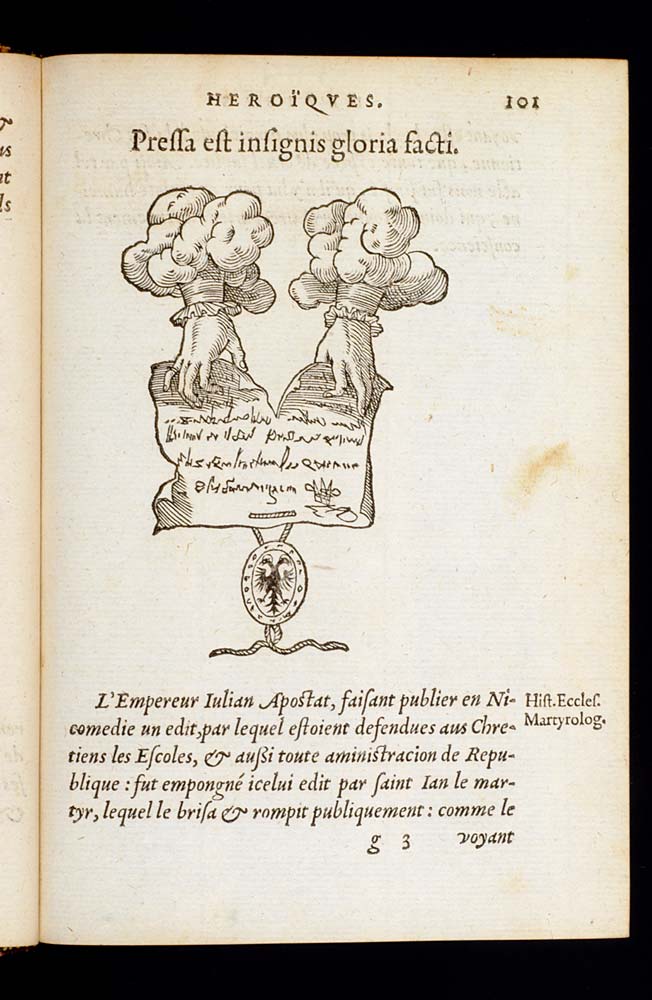 HEROÏQVES. 101
Preſſa eſt inſignis gloria facti.
L'Empereur Iulian Apoſtat, faiſant publier en Ni-
comedie un edit, par lequel eſtoient defendues aus Chre-
tiens les Eſcoles, & außi toute aminiſtracion de Repu-
blique : fut empongné icelui edit par ſaint Ian le mar-
tyr, lequel le briſa & rompit publiquement : comme le
g 3 voyant
Hiſt. Eccleſ.
Martyrolog.